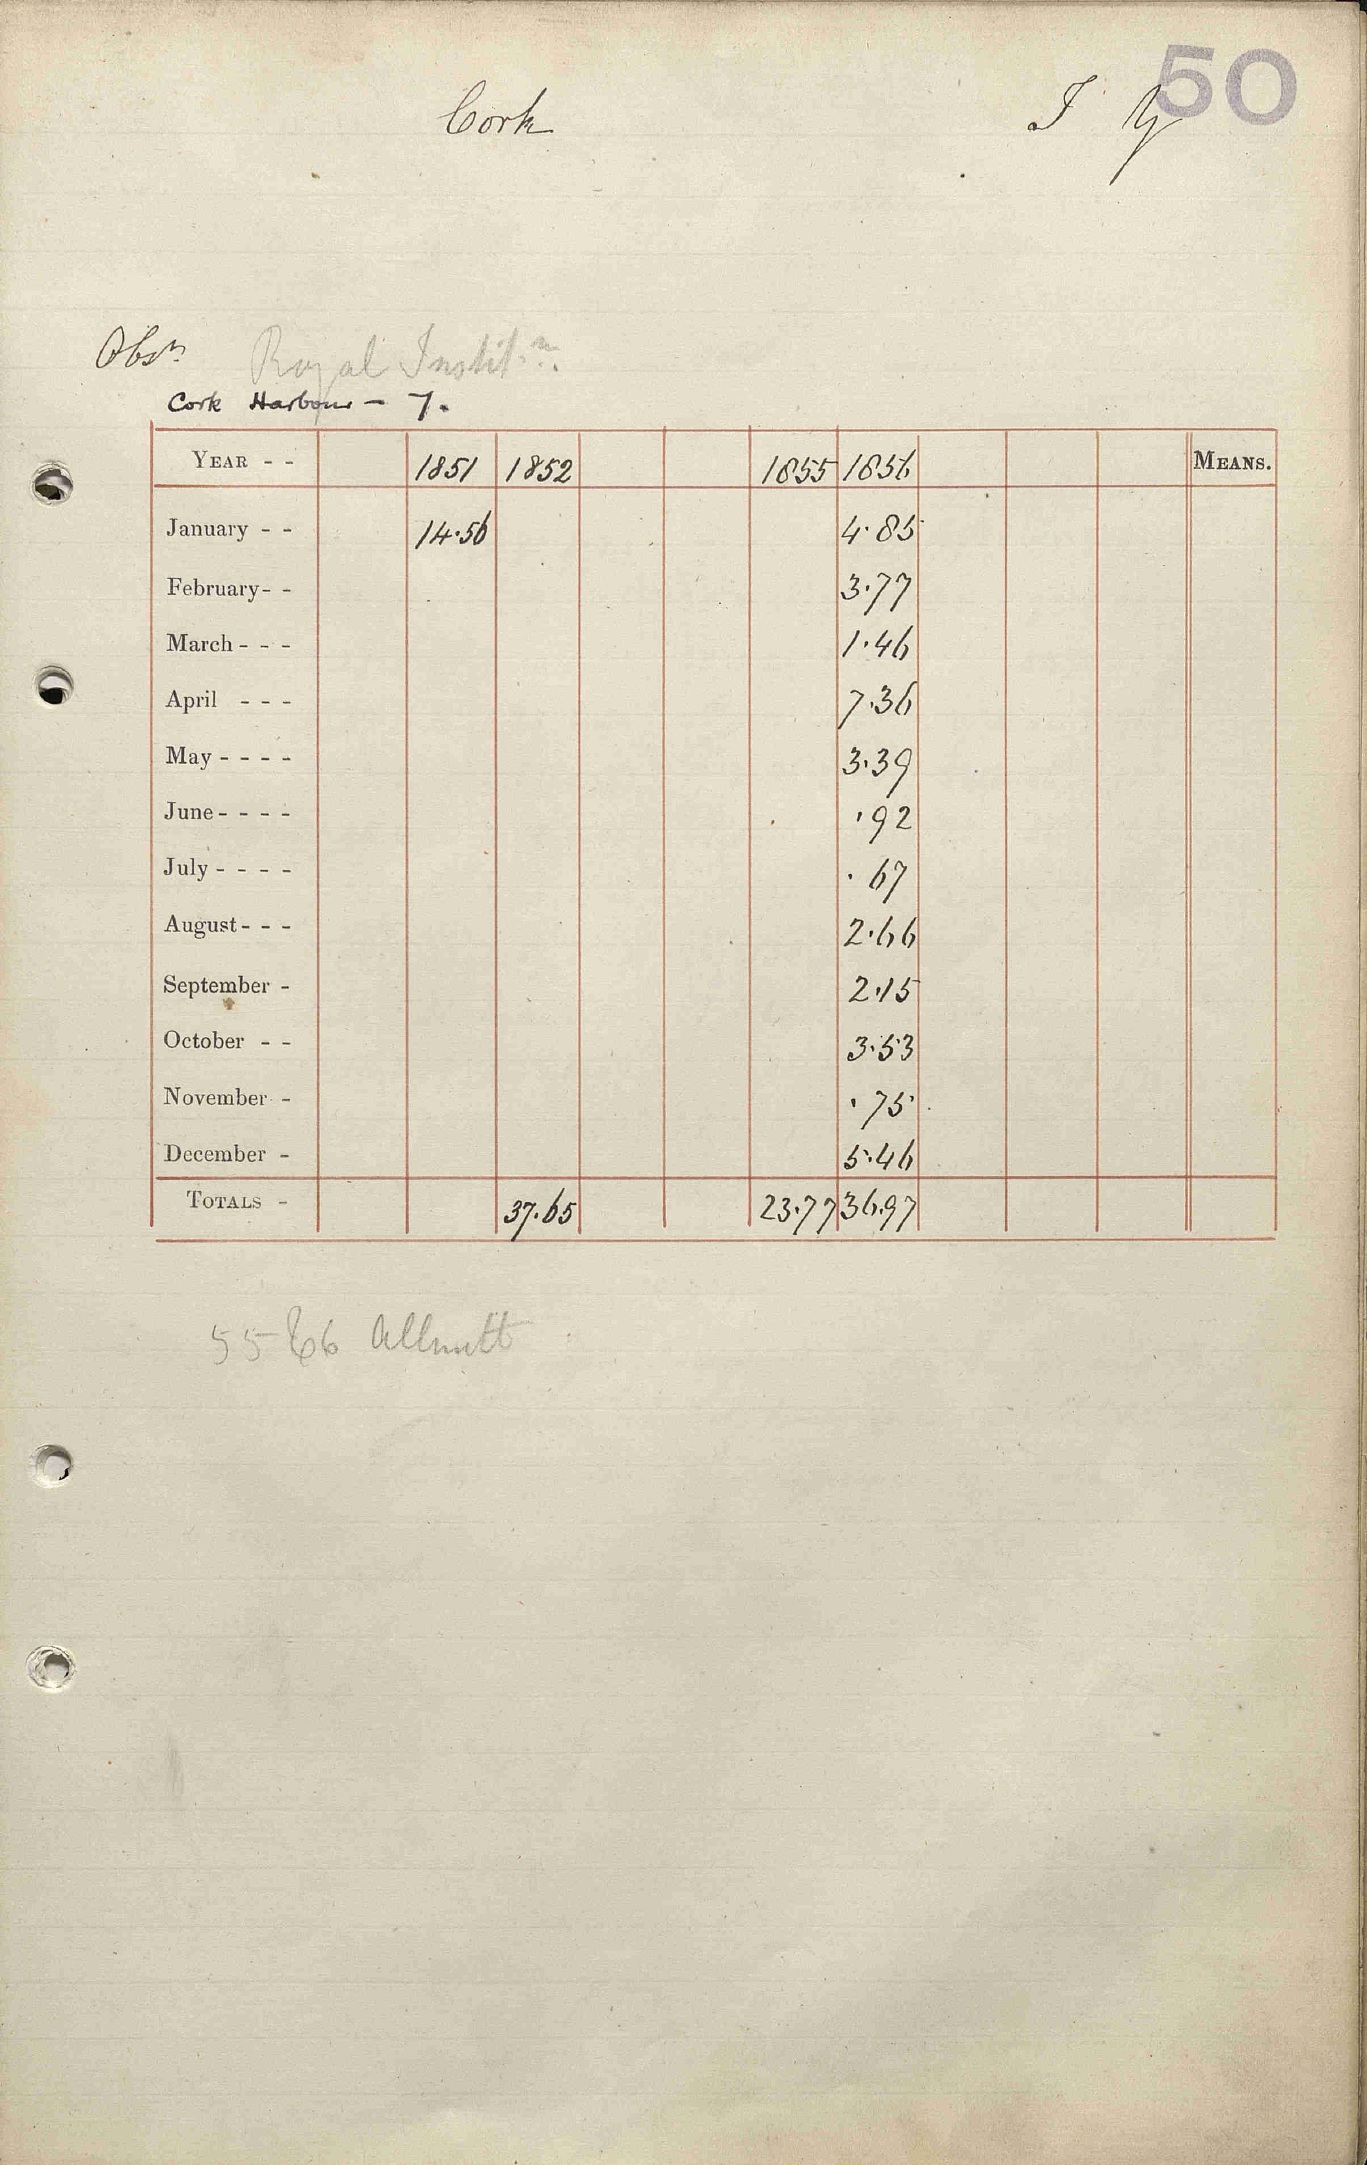 50
Cork I
Obsn Royal Instit.n
Cork Harbour - 7.
YEAR - - 1851 1852 1855 1856 MEANS.
January - - 14.56 4.85
February - - 3.77
March - - - 1.46
April - - - 7.36
May - - - - 3.39
June - - - - .92
July - - - - .67
August - - - 2.66
September - 2.15
October - - 3.53
November - .75
December - 5.46
TOTALS - 37.65 23.77 36.97
55 & 6 Allnutt